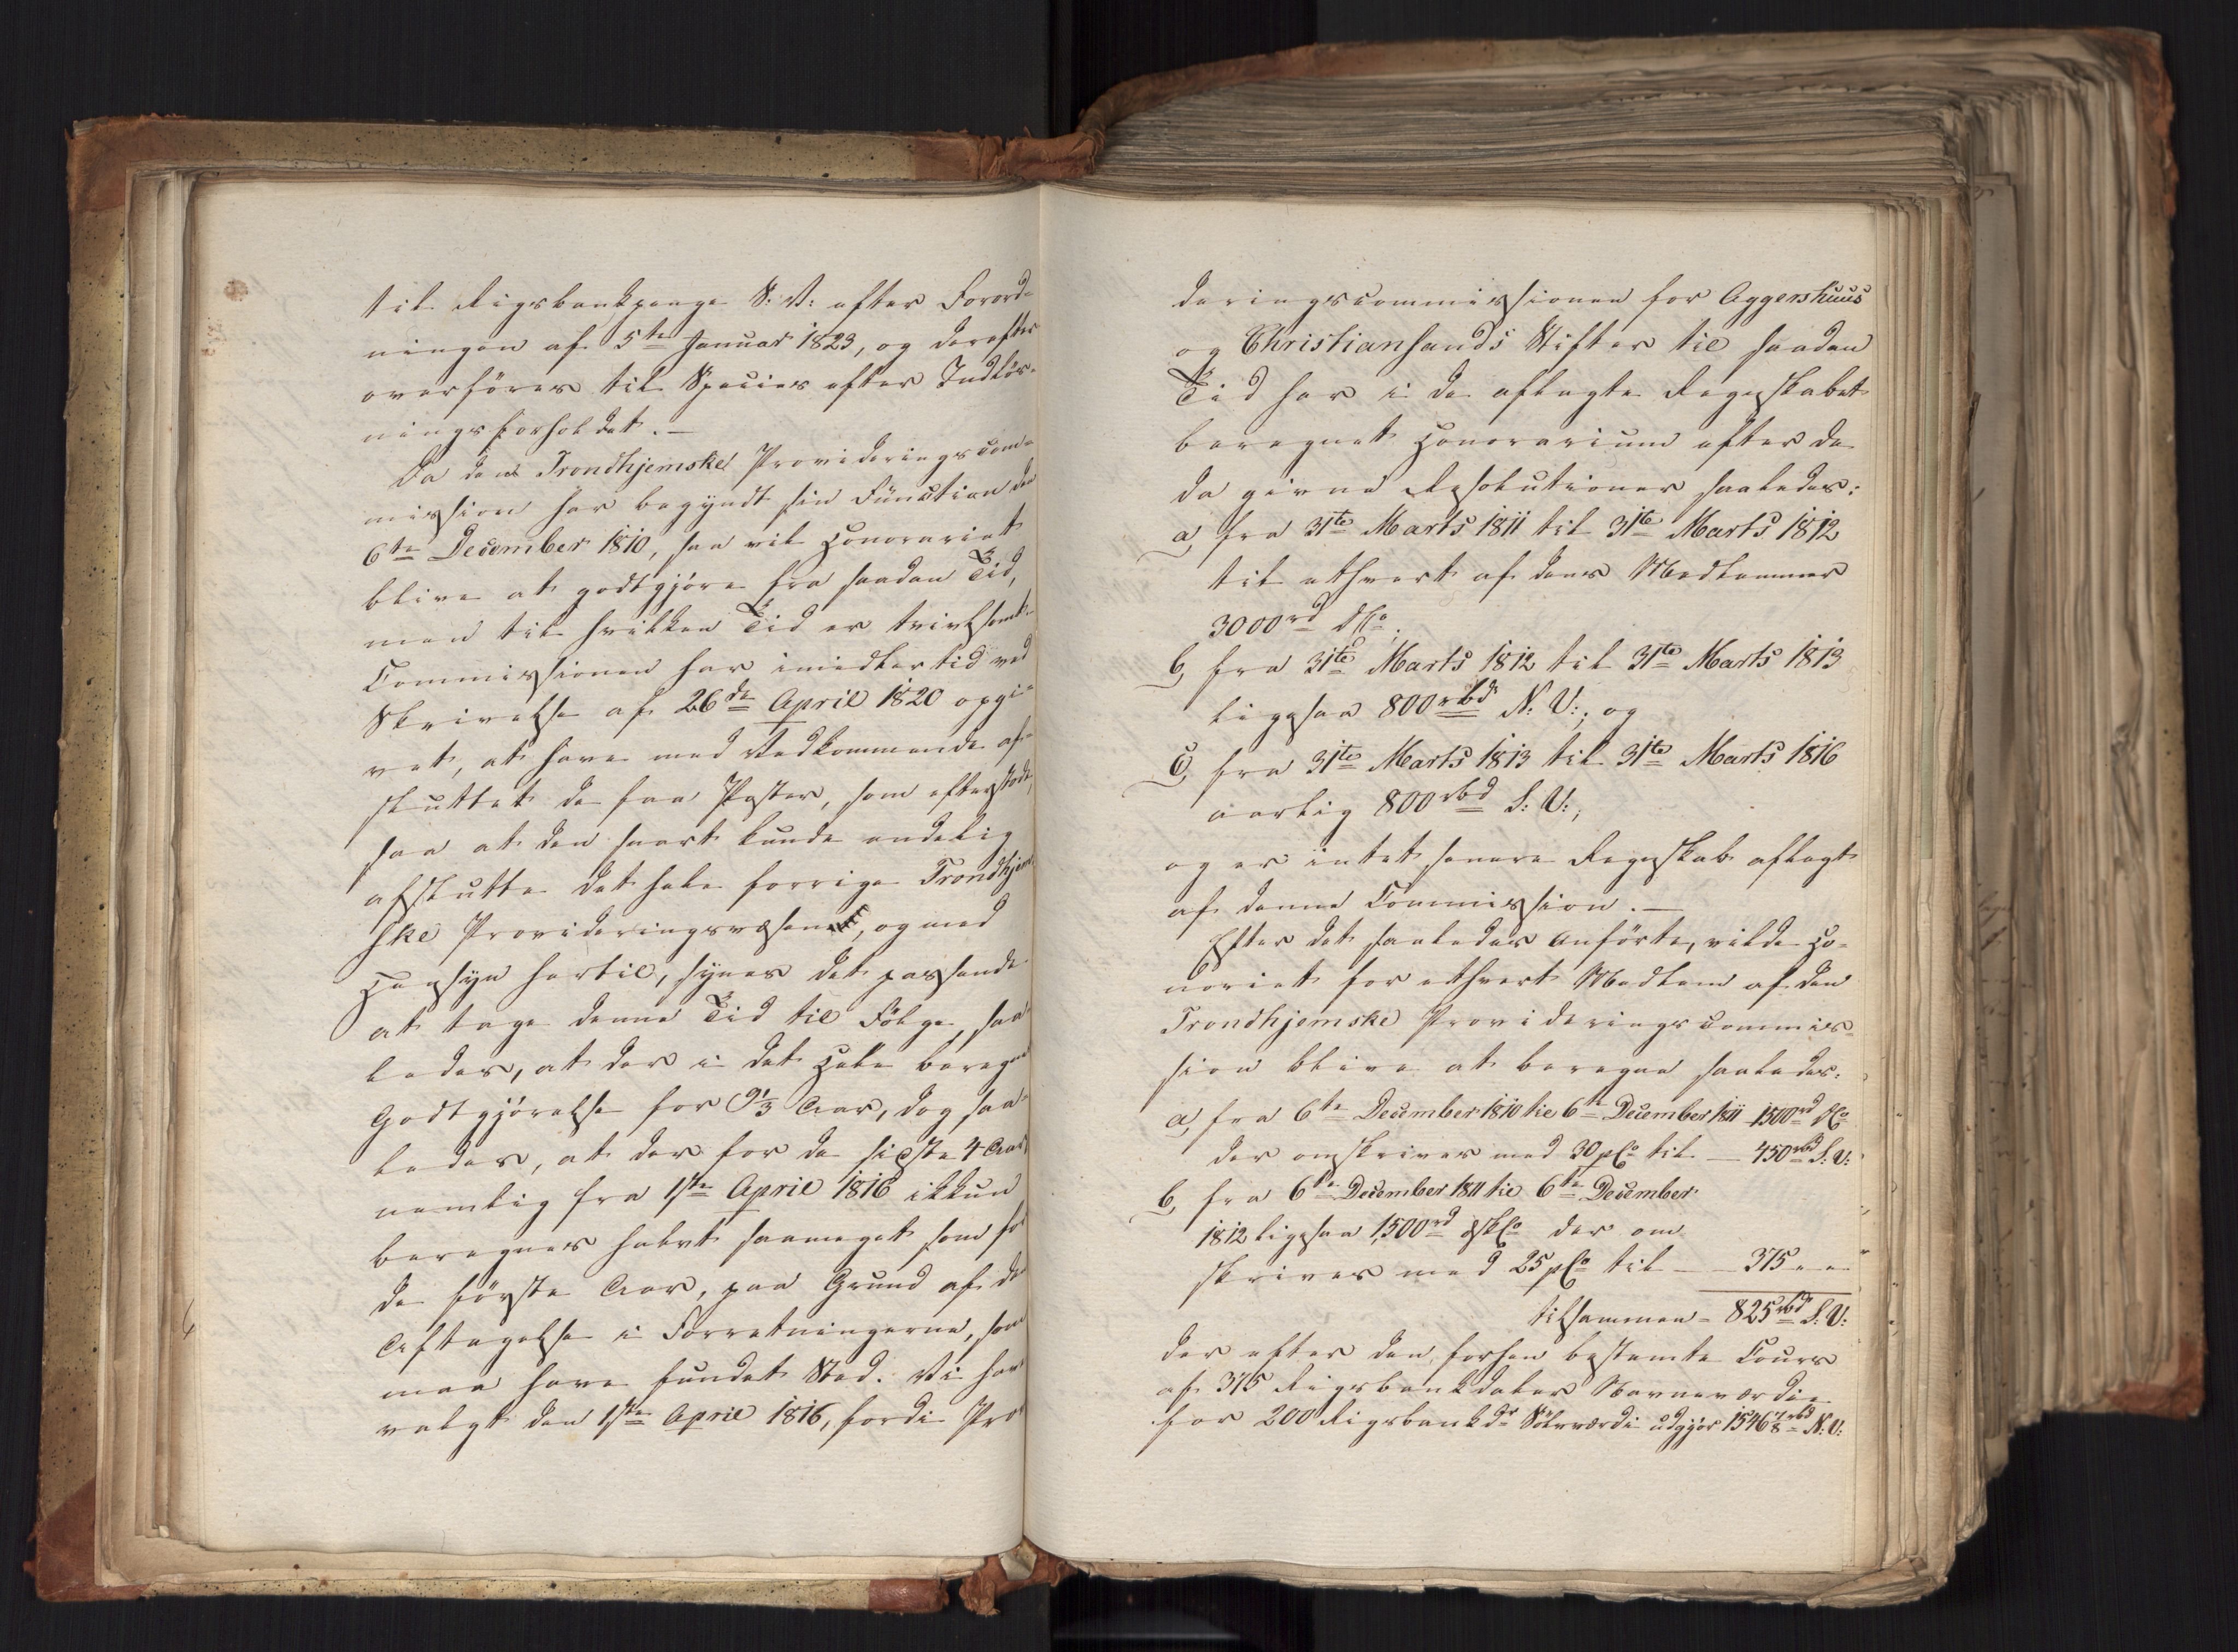 til Rigsbankpenge S: V: efter Forord-
ningen af 5te Januar 1823, og derefter
overføres til Species efter Indløs-
ningsforholdet. —
Da den Trondhjemske Provideringscom-
mission har begyndt sin Function den
6te December 1810, saa vil Honorariet
blive at godtgjøre fra saadan Tid,
men til hvilken Tid er tvivlsomt.
Commissionen har imidlertid ved
Skrivelse af 26de April 1820 opgi-
vet, at have med Vedkommende af-
sluttet de faa Poster, som efterstode,
saa at den snart kunde endelig
afslutte det hele forrige Trondhjem-
ske Provideringsvæsen, og med
Hensyn hertil, synes det passende
at tage denne Tid til Følge, saa-
ledes, at der i det Hele beregnes
Godtgjørelse for 9 1/3 Aar, dog saa-
ledes, at der for de sidste 4 Aar
nemlig fra 1ste April 1816 ikkun
beregnes halvt saameget som for
de første Aar, paa Grund af de
Aftagelse i Forretningerne, som
maa have fundet Sted. Vi have
valgt den 1ste April 1816, fordi Pro-
deringscommissionen for Aggershuus
og Christiansands Stifter til saadan
Tid har i de aflagte Regnskaber
beregnet Honorarium efter de
da givne Resolutioner saaledes:
a, fra 31te Marts 1811 til 31te Marts 1812
til ethvert af dens Medlemmer
3000rd DCo.
b, fra 31te Marts 1812 til 31te Marts 1813
ligesaa 800rbd N: V:, og
c, fra 31te Marts 1813 til 31te Marts 1816
aarlig 800rbd S: V:;
og er intet senere Regnskab aflagt
af denne Commission. —
Efter det saaledes Anførte, vilde Ho-
noriet for ethvert Medlem af den
Trondhjemske Provideringscommis-
sion blive at beregne saaledes:
a, fra 6te December 1810 til 6te December 1811 1500rd DCo
der omskrives med 30 pCo til — 450rbd S: V:
b, fra 6te December 1811 til 6te December
1812 ligesaa 1,500rd DCo der om-
skrives med 25 pCo til — 375 „ „
tilsammen = 825rbd S: V:
der efter den forhen bestemte Cours
af 375 Rigsbankdaler Navneværdie
for 200 Rigsbankdr Sølvværdi udgjør 1546 7/8 rbd N: V: